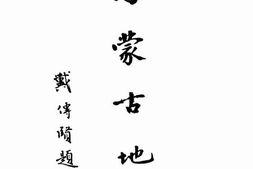 蒙古地
戴傳賢題